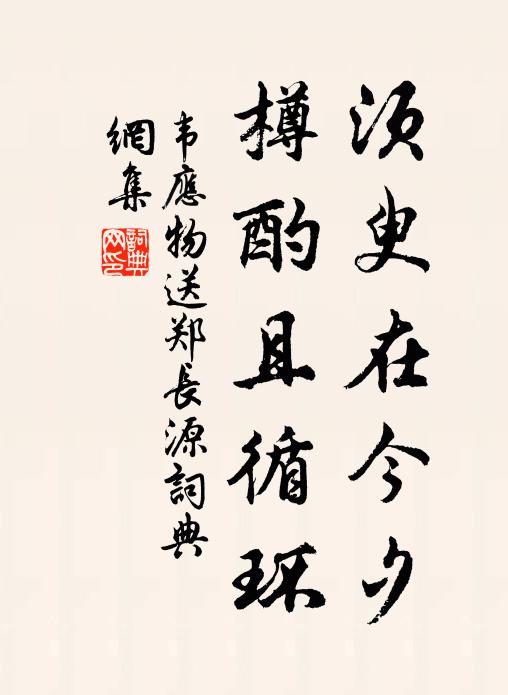 须臾在今夕
樽酌且循环
韦應物送郑長源詞典
網集
詞典
网印